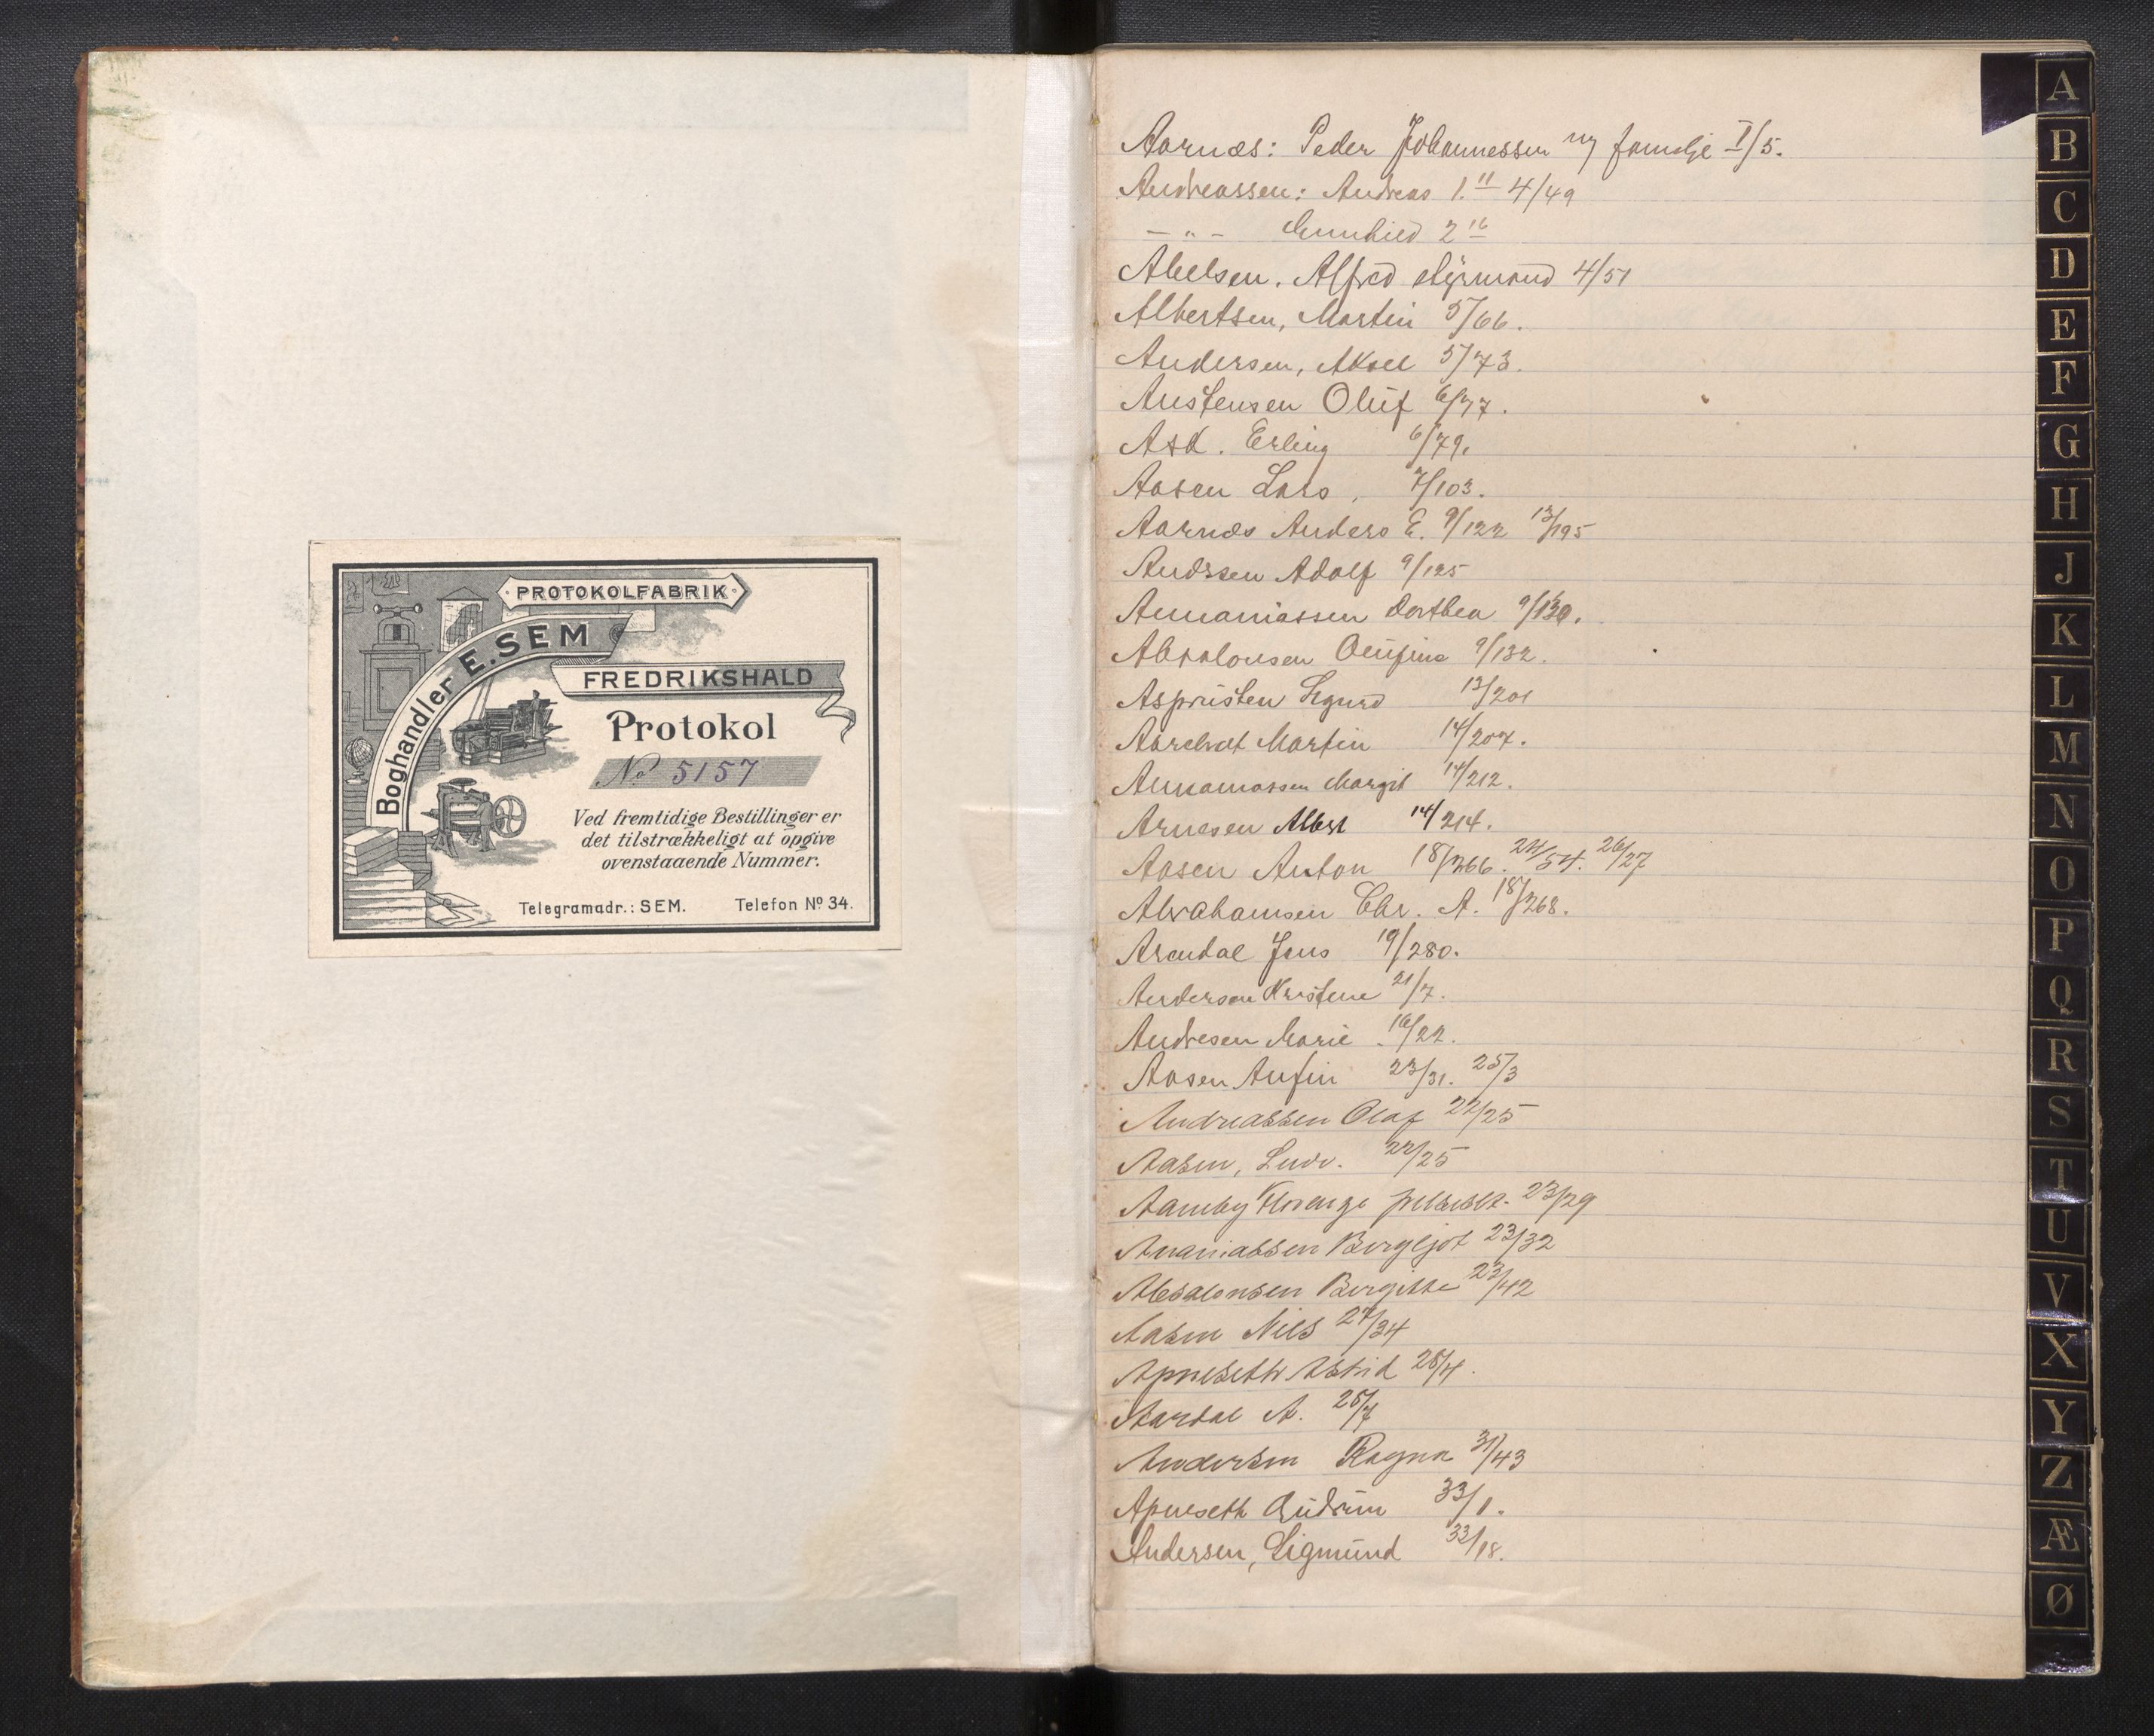 PROTOKOLFABRIK
Boghandler E. SEM
FREDRIKSHALD
Protokol
No 5157
Ved fremtidige Bestillinger er
det tilstrækkeligt at opgive
ovenstaaende Nummer.
Telegramadr.: SEM. Telefon No 34.
Aarnæs: Peder Johannessen og familje I/5.
Andreassen: Andreas 1. 11 4/49
— " — Gunhild 2 16
Abelsen. Alfred Sigmund 4/51
Albertsen, Martin 5/66.
Andersen, Aksel 5/73.
Austensen Oluf 6/77.
Ask. Erling 6/79.
Aasen Lars, 7/103.
Aarnæs Anders E. 9/122 13/195
Andrsen Adolf 9/125
Annaniassen Dorthea 9/130.
Absalonsen Oufine 9/132.
Asprusten Sigurd 13/201
Martin 14/207.
Annaniassen Margit 14/212.
Arnesen Albert 14/214.
Aasen Anton 18/266. 24/54. 26/27
Abrahamsen Chr. A. 18/268.
Arendal Jens 19/280.
Andersen Kristine 21/7.
Andresen Marie 16/22.
Aasen Anfin 23/31. 25/3
Andreassen Olaf 22/25
Aasen, Ludv. 22/25
Aamby Florenze 23/29
Ananiassen Bergljot 23/32
Absalonsen Bergitte 23/42
Aasen Nils 27/34
Apneseth Astrid 28/4.
Aardal A. 28/7
Andersen Ragna 31/43
Apneseth Gudrun 33/1.
Andersen, Sigmund 33/18.
A
B
C
D
E
F
G
H
J
K
L
M
N
O
P
Q
R
S
T
U
V
X
Y
Z
Æ
Ø